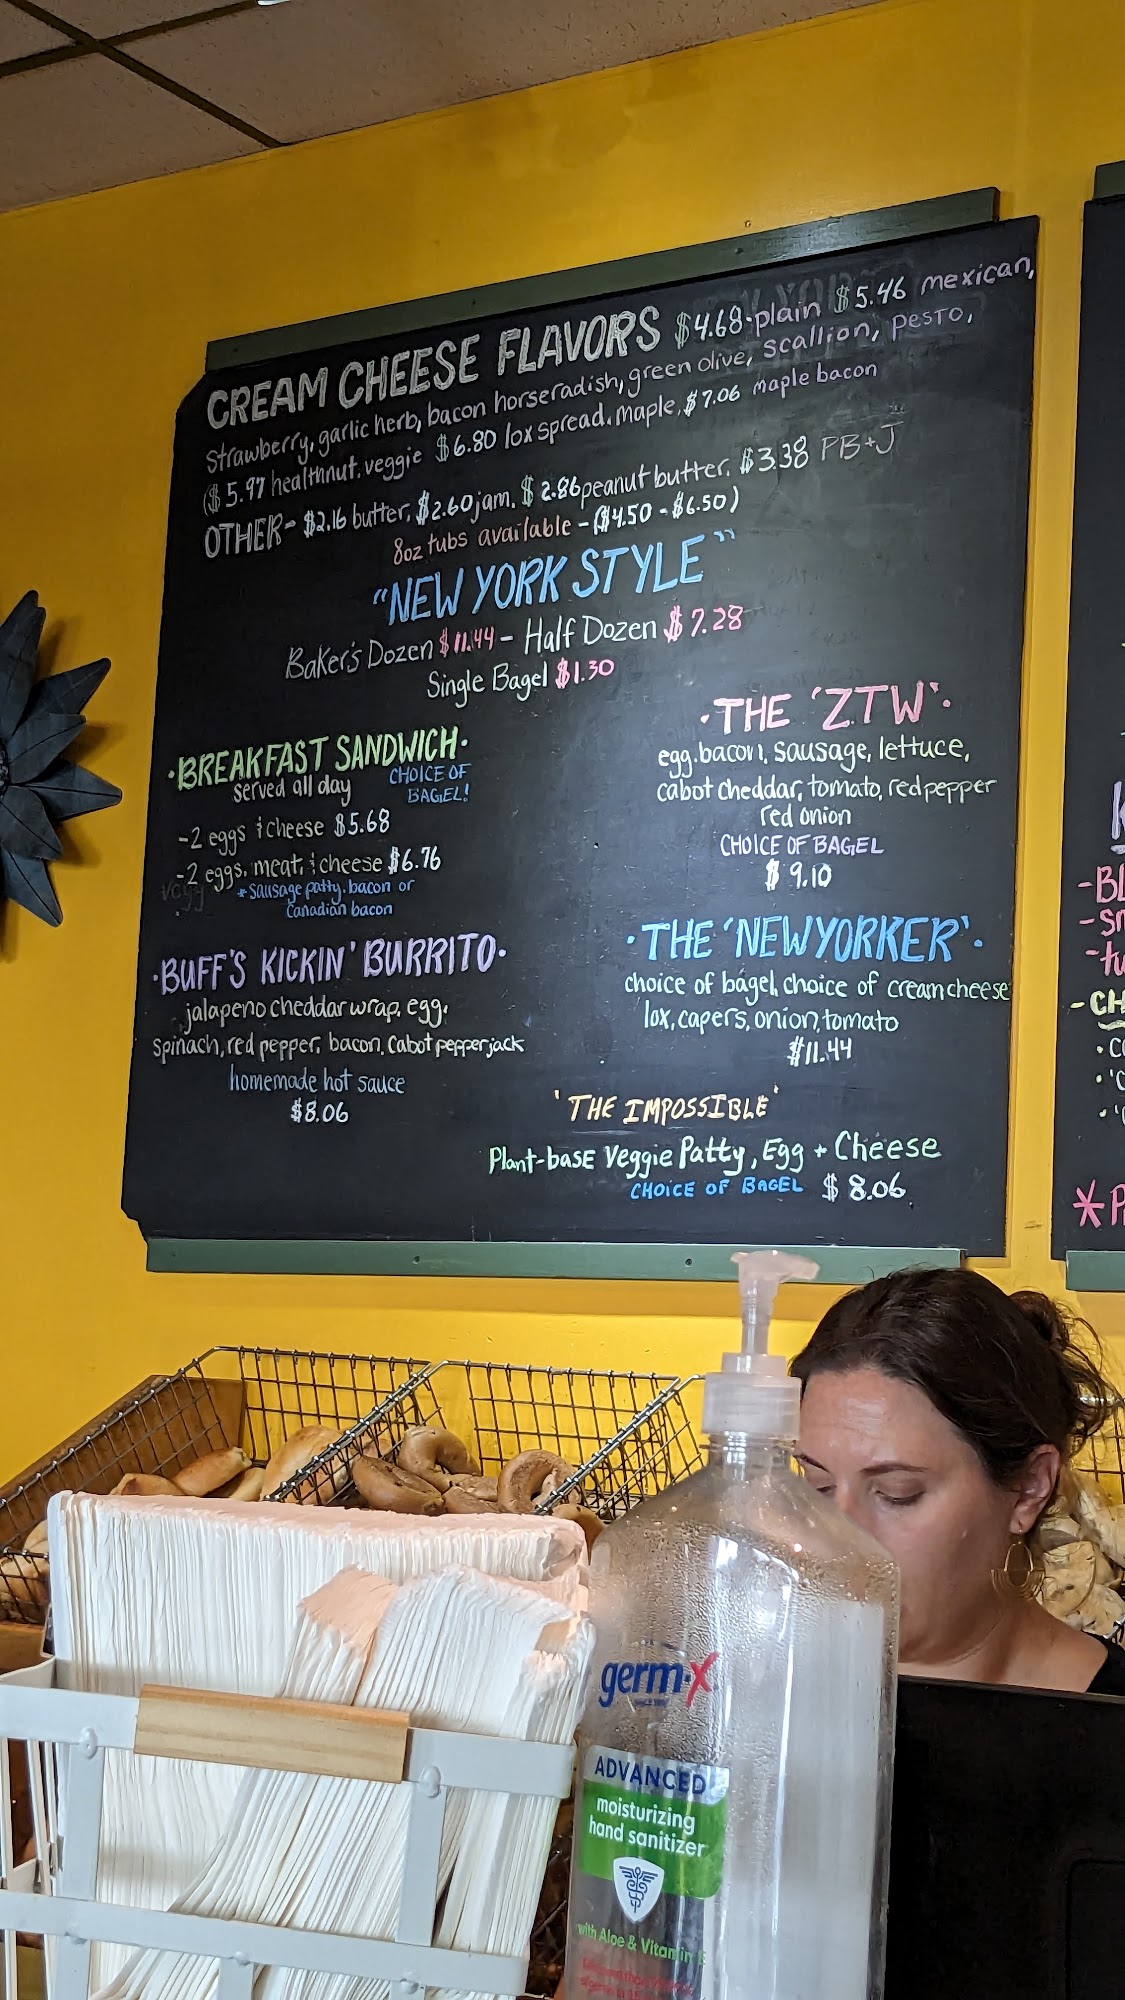 CREAM CHEESE FLAVORS $4.68-plain $5.46 mexican,
strawberry, garlic herb, bacon horseradish, green olive, scallion, pesto,
($5.97 healthnut. veggie $6.80 lox spread. maple, $7.06 maple bacon
OTHER- $2.16 butter, $2.60 jam, $2.86 peanut butter. $3.38 PB+J
8oz tubs available - ($4.50 - $6.50)
"NEW YORK STYLE"
Baker's Dozen $11.44 - Half Dozen $7.28
Single Bagel $1.30
·BREAKFAST SANDWICH·
served all day
CHOICE OF
BAGEL!
-2 eggs & cheese $5.68
-2 eggs, meat, & cheese $6.76
*sausage patty. bacon or
Canadian bacon
·BUFF'S KICKIN' BURRITO·
jalapeno cheddar wrap, egg,
spinach, red pepper, bacon, cabot pepperjack
homemade hot sauce
$8.06
·THE 'ZTW'·
egg. bacon, sausage, lettuce,
cabot cheddar, tomato, red pepper
red onion
CHOICE OF BAGEL
$9.10
·THE 'NEWYORKER'·
choice of bagel, choice of creamcheese
lox, capers, onion, tomato
$11.44
'THE IMPOSSIBLE'
Plant-base Veggie Patty, Egg + Cheese
CHOICE OF BAGEL $8.06
germ-x
ADVANCED
moisturizing
hand sanitizer
with Aloe & Vitamin E